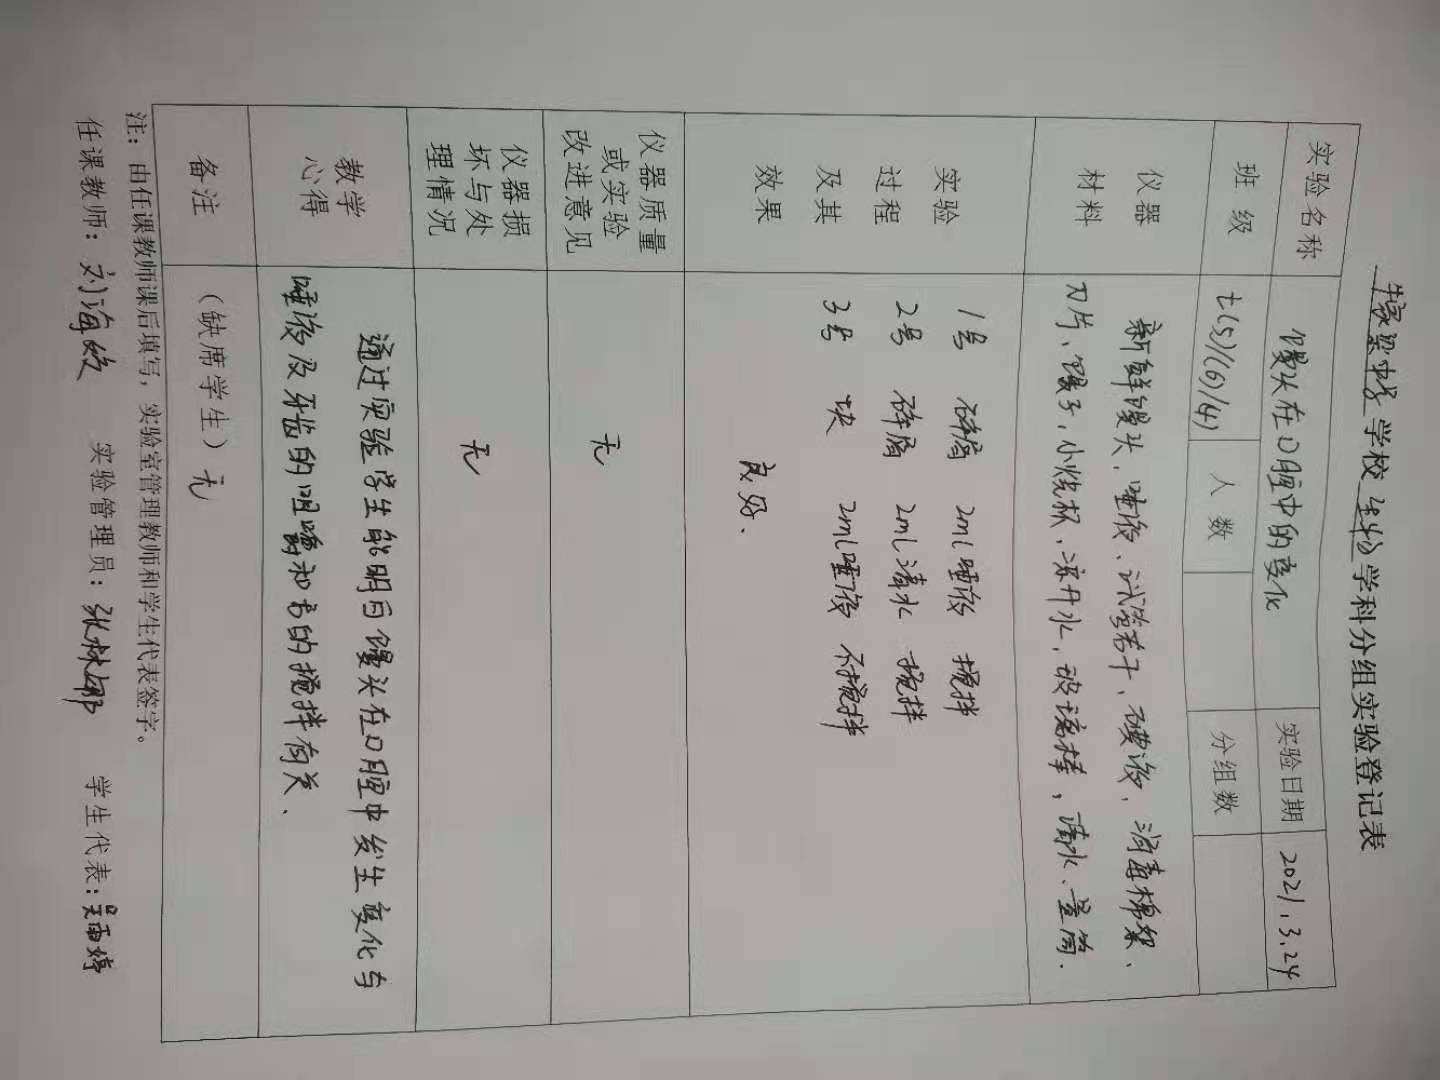 牛家梁中学学校生物学科分组实验登记表
实验名称 馒头在口腔中的变化 实验日期 2021.3.24
班级 七(5)/(6)/(4) 人数 分组数
仪器
材料
新鲜馒头、唾液、试管若干、碘液、消毒棉絮、
刀片、镊子、小烧杯、凉开水、玻璃棒、清水、量筒.
实验
过程
及其
效果
1号 碎屑 2ml唾液 搅拌
2号 碎屑 2ml清水 搅拌
3号 块 2ml唾液 不搅拌
良好.
仪器质量
或实验
改进意见
无
仪器损
坏与处
理情况
无
教学
心得
通过实验学生能明白馒头在口腔中发生变化与
唾液及牙齿的咀嚼和舌的搅拌有关.
备注 (缺席学生) 无
注：由任课教师课后填写，实验室管理教师和学生代表签字。
任课教师：刘海 实验管理员：张林娜 学生代表：吴雨婷